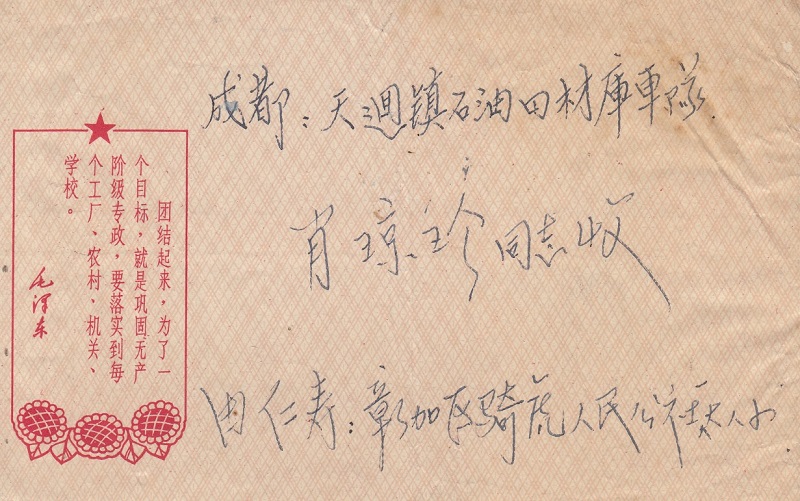 成都：天迴镇石油田材庫車隊
肖琼珍同志收
由仁寿：彰加区骑虎人民公社
团结起来，为了一
个目标，就是巩固无产
阶级专政，要落实到每
个工厂、农村、机关、
学校。
毛泽东